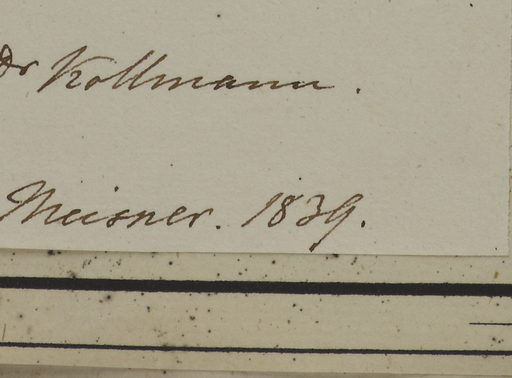 Dr Kollmann.
Meisner. 1839.